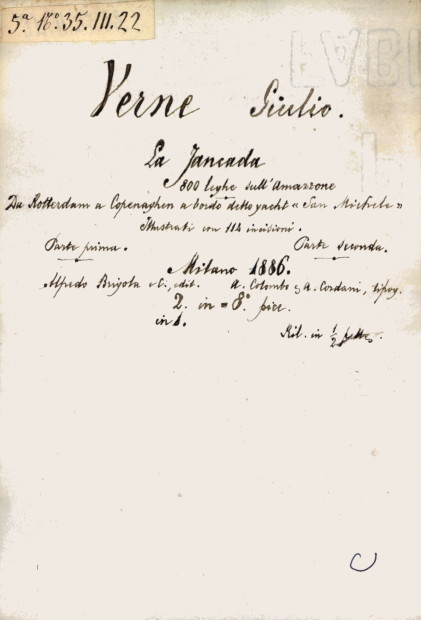 5ª 16º.35.III.22
LVBI
Verne Giulio.
La Jancada
800 leghe sull'Amazzone
Da Rotterdam a Copenaghen a bordo dello yacht "San Michele"
Illustrati con 114 incisioni.
Parte prima. Parte seconda.
Milano 1886.
Alfredo Brigola e C., edit. A. Colombo e A. Cordani, tipog.
2. in = 8.º picc.
in 1.
Ril. in ½
C